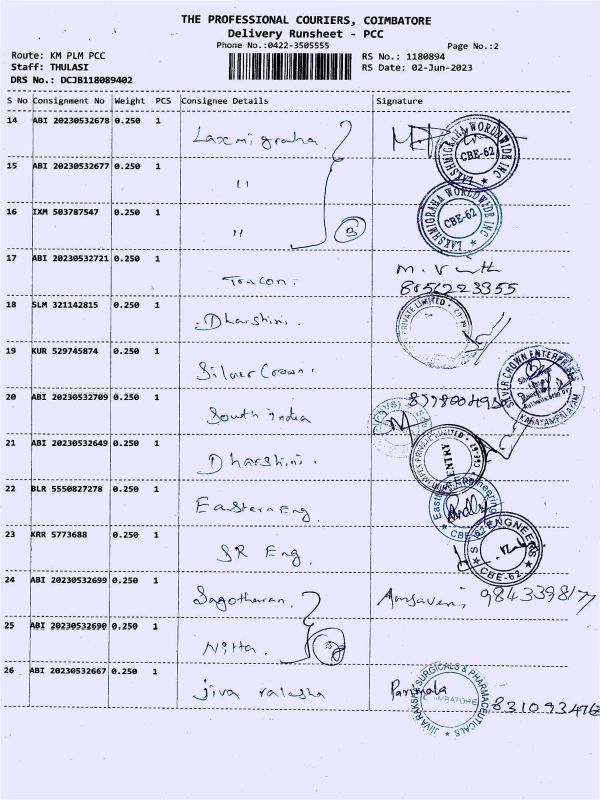 THE PROFESSIONAL COURIERS, COIMBATORE
Delivery Runsheet - PCC
Phone No.:0422-3505555 Page No.:2
Route: KM PLM PCC RS No.: 1180894
Staff: THULASI RS Date: 02-Jun-2023
DRS No.: DCJB118089402
S No Consignment No Weight PCS Consignee Details Signature
14 ABI 20230532678 0.250 1 Laxmi graha LAKSHMIGRAHA WORLDWIDE INC CBE-62
15 ABI 20230532677 0.250 1 "
16 IXM 503787547 0.250 1 " 3 LAKSHMIGRAHA WORLDWIDE INC CBE-62
17 ABI 20230532721 0.250 1 M. 
8056223355
18 SLM 321142815 0.250 1 Dharshini. PRIVATE LIMITED
19 KUR 529745874 0.250 1 Silver Crown. SILVER CROWN ENTERPRISES KARAYAMPALAYAM
20 ABI 20230532709 0.250 1 South india
21 ABI 20230532649 0.250 1 Dharshini. IMPEX PRIVATE LIMITED ENTRY
22 BLR 5550827278 0.250 1 Eastern Eng. Eastern Engineering CBE-62
23 KRR 5773688 0.250 1 SR Eng. ENGINEERS CBE-62
24 ABI 20230532699 0.250 1 Amsaveni 9843398177
25 ABI 20230532690 0.250 1 Nitta.
26 ABI 20230532667 0.250 1 jiva raksha Parimala JIVARAKSHA SURGICALS & PHARMACEUTICALS COIMBATORE